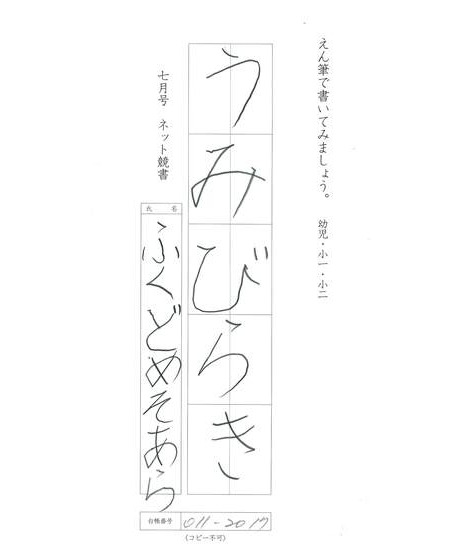 えん筆で書いてみましょう。 幼児・小一・小二
うみびらき
七月号 ネット競書
氏 名
ふくどめそあら
台帳番号 011-2017
(コピー不可)